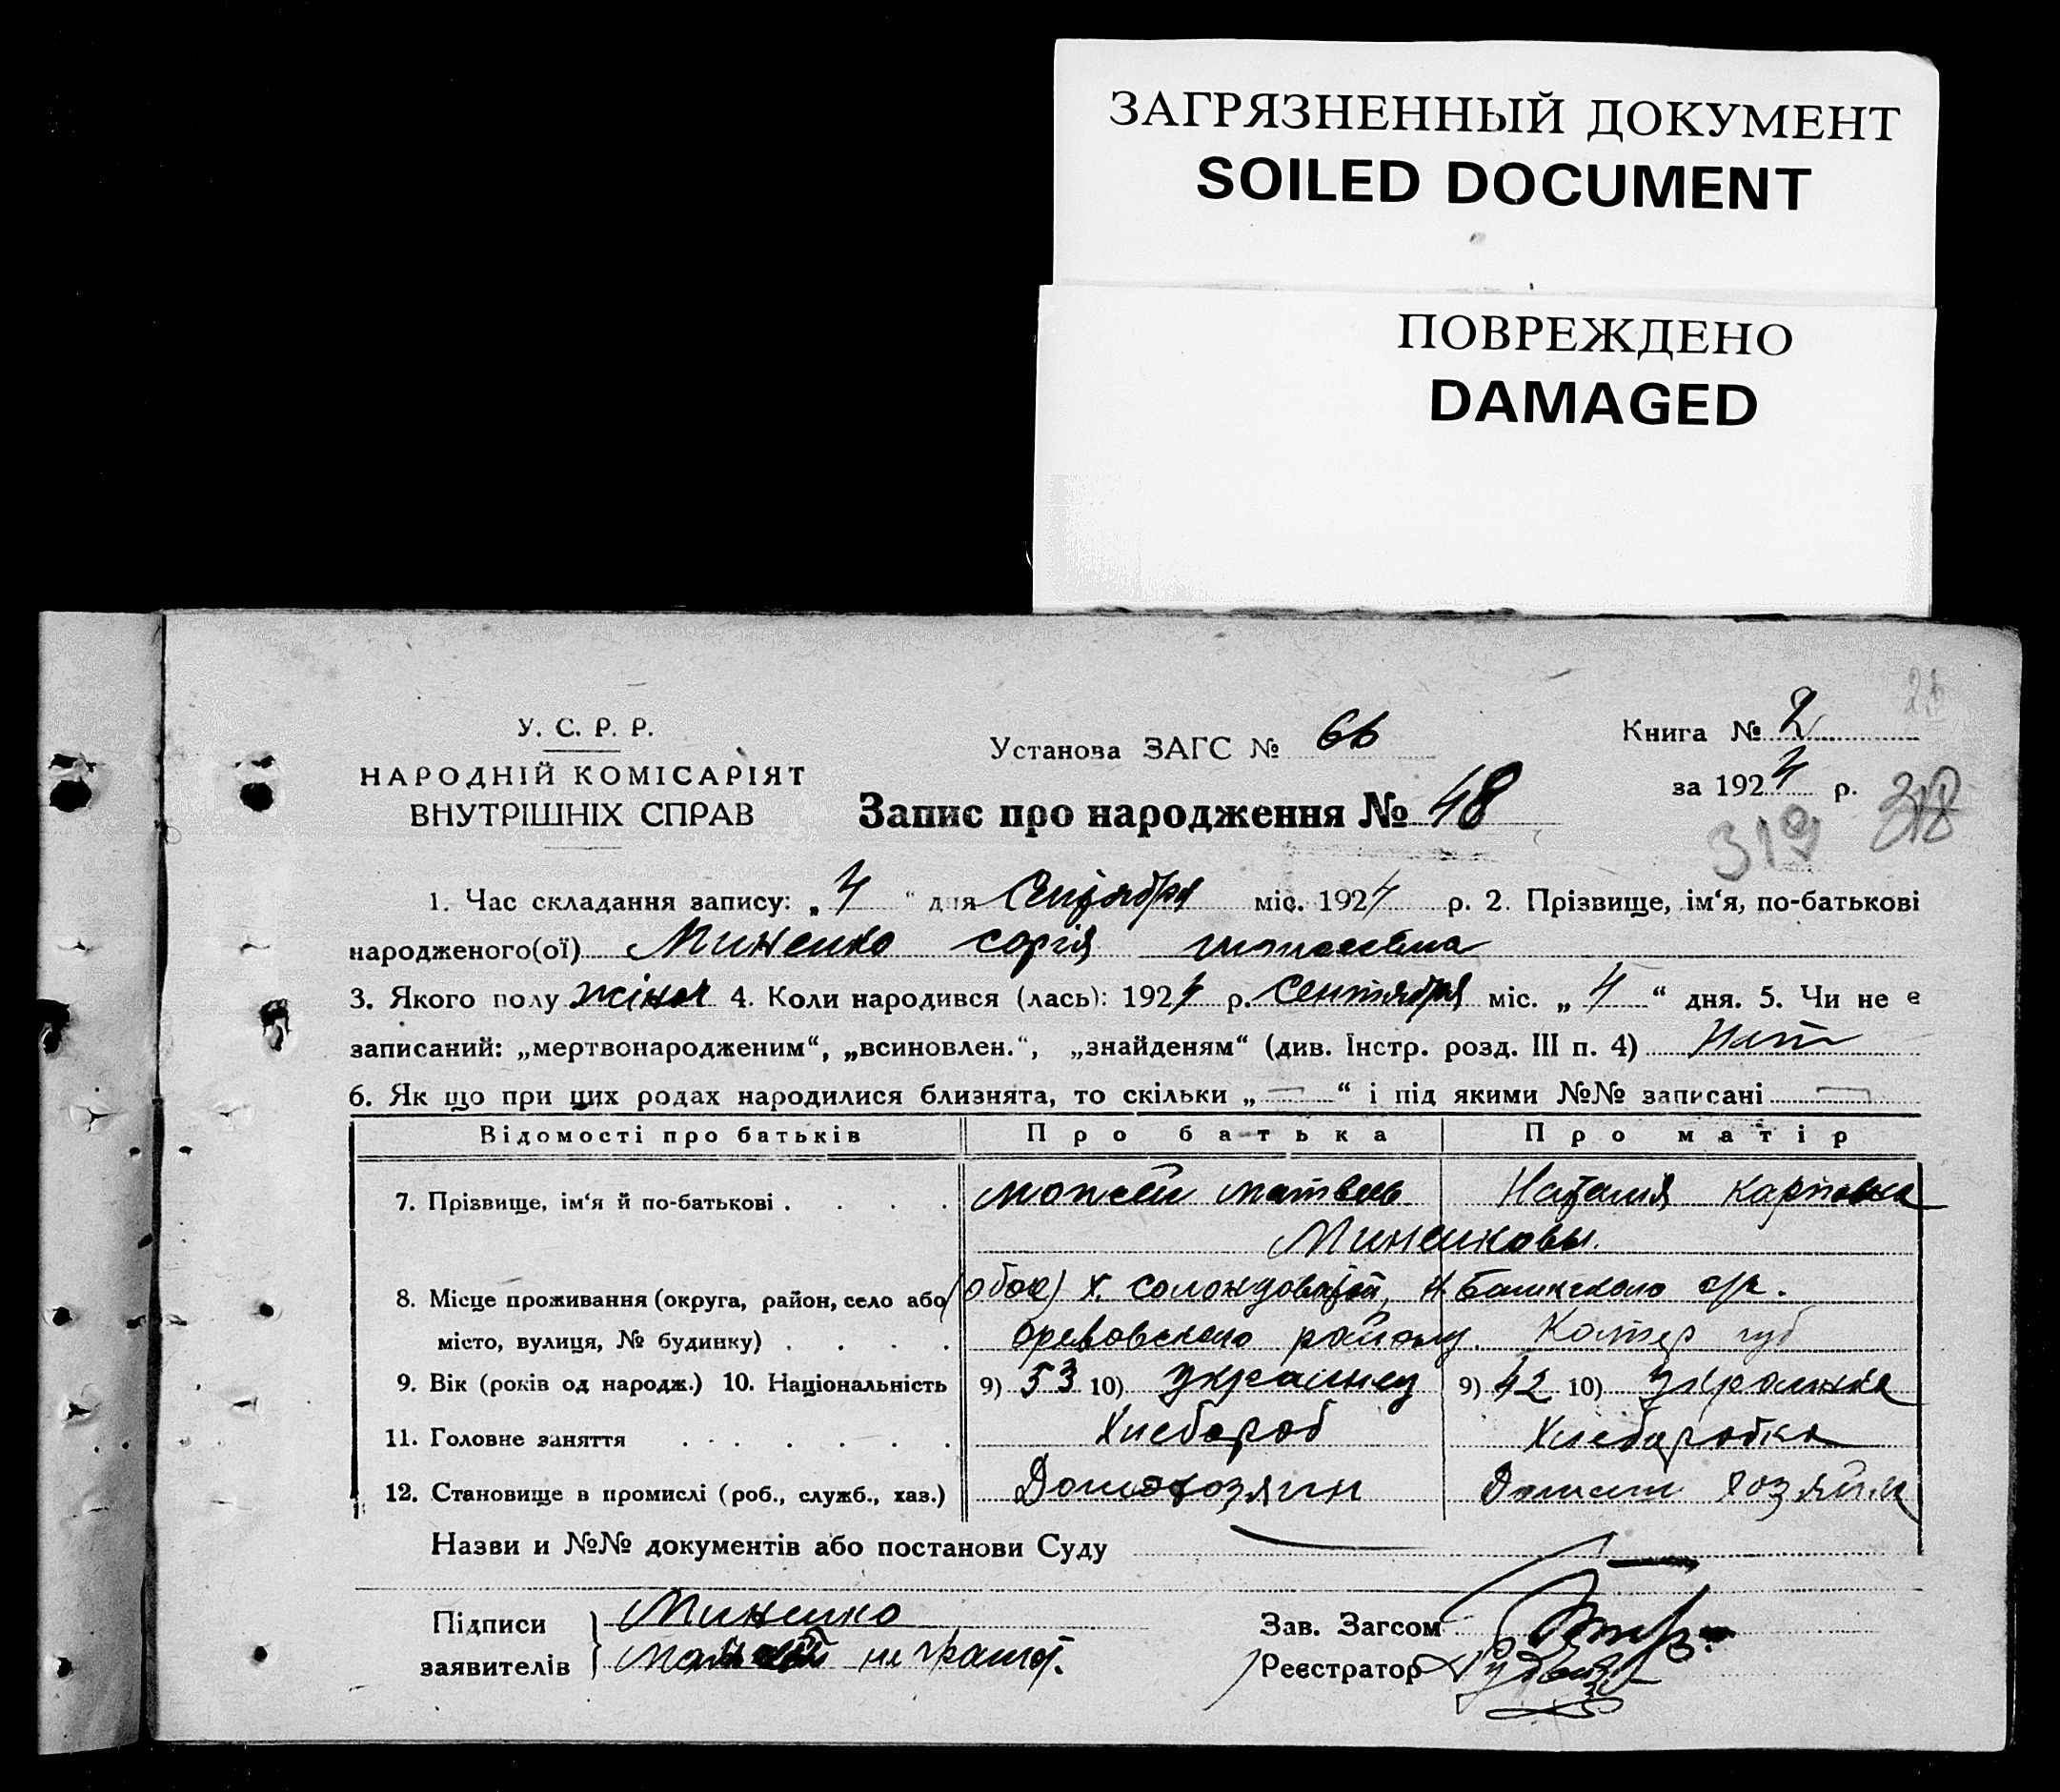 ЗАГРЯЗНЕННЫЙ ДОКУМЕНТ
SOILED DOCUMENT
ПОВРЕЖДЕНО
DAMAGED
У. С. Р. Р.
НАРОДНІЙ КОМІСАРІЯТ
ВНУТРІШНІХ СПРАВ
Установа ЗАГС № 66
Книга № 2
за 1924 р.
319 318
Запис про народження № 48
1. Час складання запису: „4“ дня Сентября міс. 1924 р. 2. Прізвище, ім‘я, по-батькові
народженого(ої) Миненко софія
3. Якого полу жіноч 4. Коли народився (лась): 1924 р. Сентября міс. „4“ дня. 5. Чи не є
записаний: „мертвонародженим“, „всиновлен.“, „знайденям“ (див. Інстр. розд. III п. 4) Нет
6. Як що при цих родах народилися близнята, то скільки „—“ і під якими №№ записані —
Відомості про батьків Про батька Про матір
7. Прізвище, ім‘я й по-батькові . . . . матвеев Наталия Карповна
Миненковы.
8. Місце проживання (округа, район, село або (обоє) х.
місто, вулиця, № будинку) . . . . ореховского району. Катер губ
9. Вік (років од народж.) 10. Національність 9) 53 10) Украинец 9) 42 10) Украинка
11. Головне заняття . . . . . . . Хлебороб Хлеборобка
12. Становище в промислі (роб., служб., хаз.) Домохозяин хозяйка
Назви и №№ документів або постанови Суду —
Підписи заявителів } Миненко
неграмот.
Зав. Загсом
Реєстратор